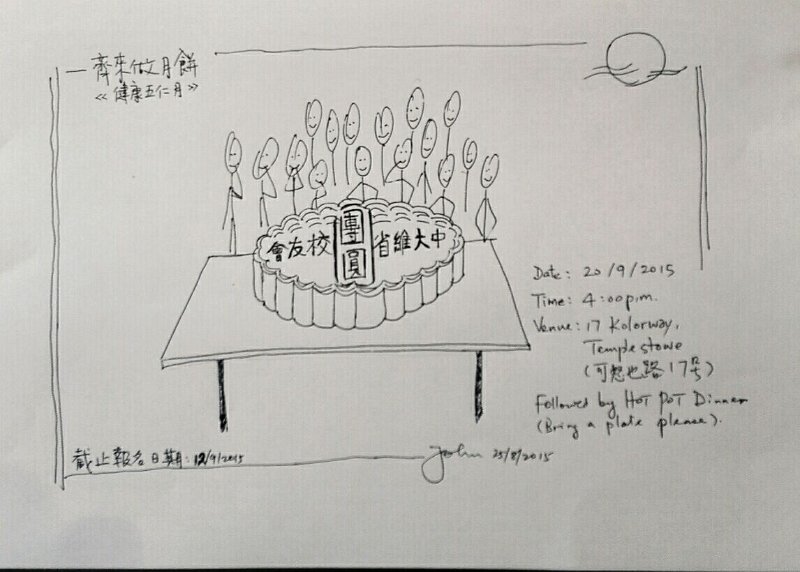 一齊來做月餅
《健康五仁月》
中大維省校友會
團圓
Date: 20/9/2015
Time: 4:00p.m.
Venue: 17 Kolorway,
Templestowe
(可想也路17号)
Followed by HOT POT Dinner
(Bring a plate please).
截止報名日期: 12/9/2015
John 25/8/2015